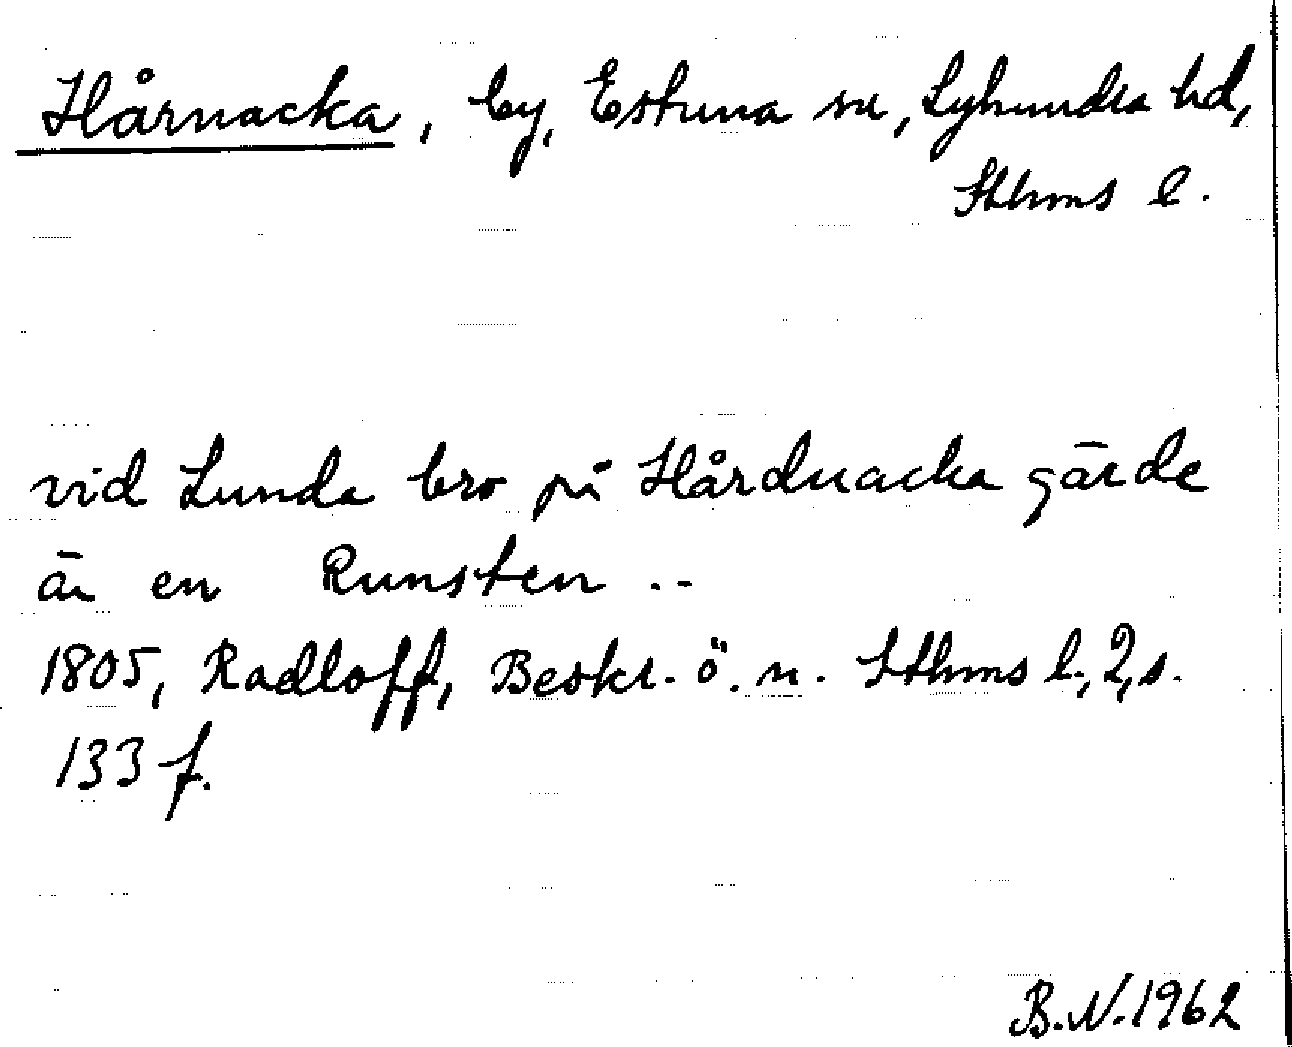 Hårnacka, by, Estuna sn, Lyhundra hd,
Sthms l.
vid Lunda bro på Hårdnacka gärde
är en Runsten ..
1805, Radloff, Beskr. ö. n. Sthms l., 2, s.
133 f.
B.N. 1962